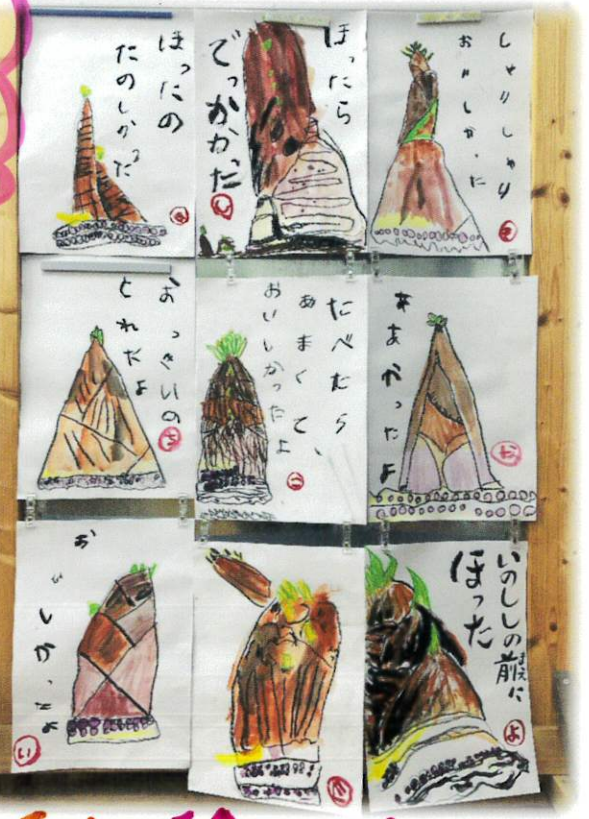 ほったの
たのしかった
ほったら
でっかかった
し
しゃりしゃり
おいしかった
おっきいの
とれたよ
ち
たべたら、
あまくて、
おいしかったよ
こ
おいしかったよ
い
いのししの前に
まえ
ほった
よ